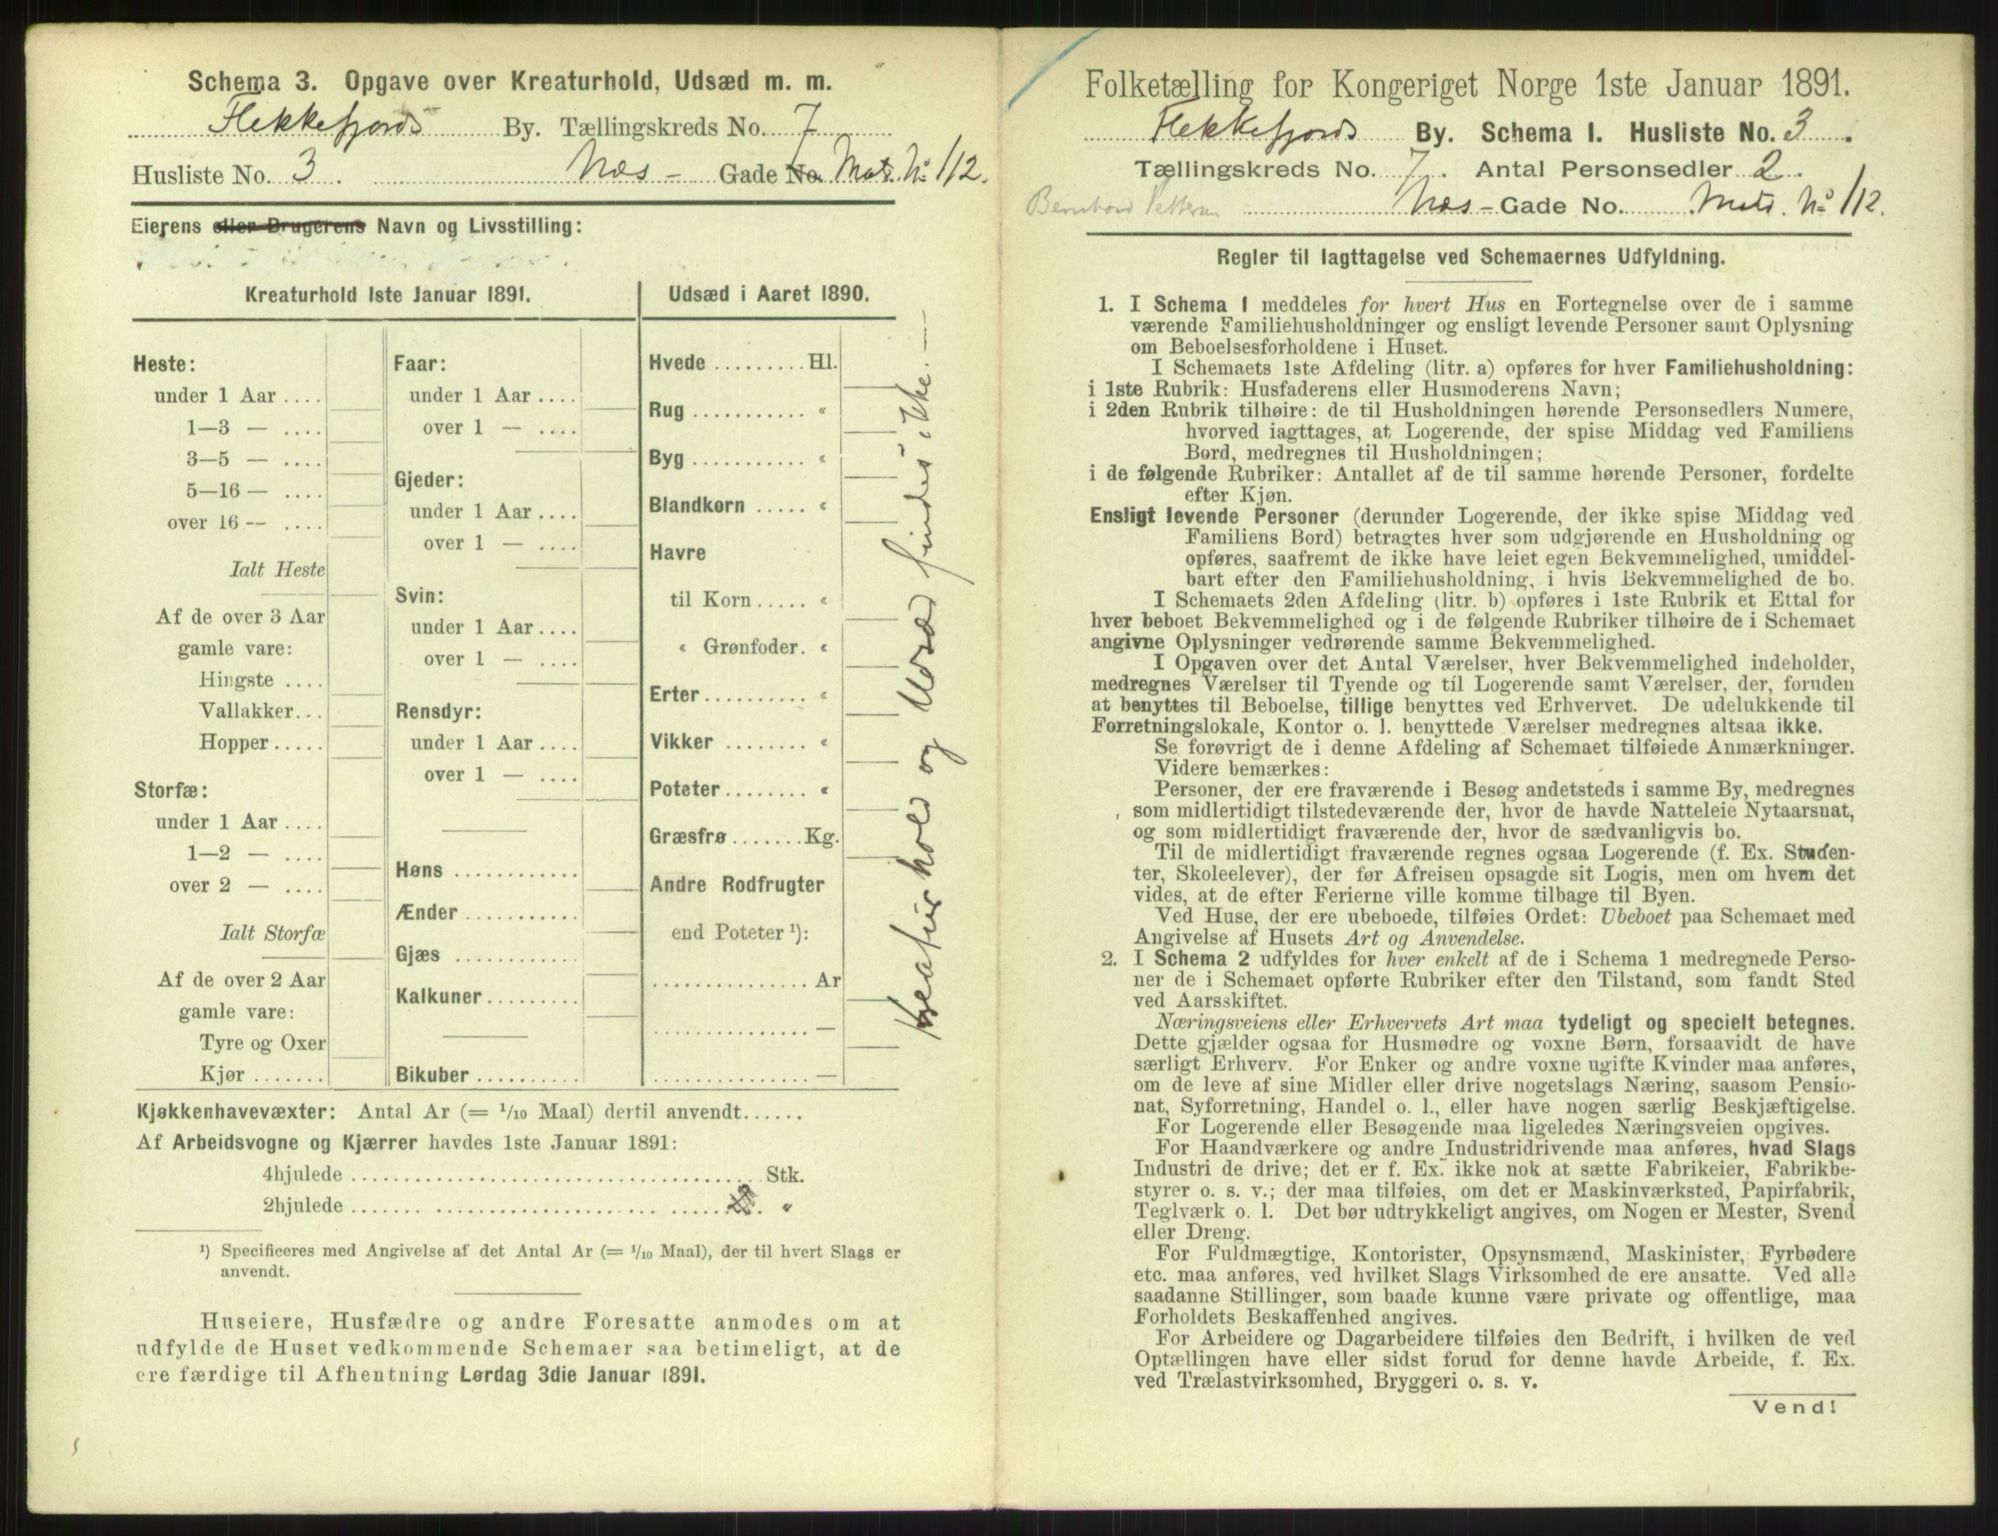 Schema 3. Opgave over Kreaturhold, Udsæd m. m.
Flekkefjords By. Tællingskreds No. 7
Husliste No. 3 Næs - Gade No. Mat. No 112.
Eierens eller Brugerens Navn og Livsstilling:
Kreaturhold 1ste Januar 1891.
Heste:
under 1 Aar ....
1—3 — ....
3—5 — ....
5—16 — ....
over 16 — ....
Ialt Heste
Af de over 3 Aar
gamle vare:
Hingste ....
Vallakker...
Hopper .....
Storfæ:
under 1 Aar ....
1—2 — ....
over 2 — ....
Ialt Storfæ
Af de over 2 Aar
gamle vare:
Tyre og Oxer
Kjør .......
Faar:
under 1 Aar ....
over 1 — ....
Gjeder:
under 1 Aar ....
over 1 — ....
Svin:
under 1 Aar ....
over 1 — ....
Rensdyr:
under 1 Aar ....
over 1 — ....
Høns ............
Ænder ...........
Gjæs ............
Kalkuner.........
Bikuber ..........
Udsæd i Aaret 1890.
Hvede ......... Hl.
Rug ........... «
Byg ........... «
Blandkorn ..... «
Havre
til Korn ..... «
« Grønfoder. «
Erter .......... «
Vikker ........ «
Poteter ........ «
Græsfrø ....... Kg.
Andre Rodfrugter
end Poteter ¹):
.............. Ar
.............. —
.............. —
Kreaturhold og Udsæd findes ikke. —
Kjøkkenhavevæxter: Antal Ar (= 1/10 Maal) dertil anvendt......
Af Arbeidsvogne og Kjærrer havdes 1ste Januar 1891:
4hjulede ...................................... Stk.
2hjulede ...................................... «
¹) Specificeres med Angivelse af det Antal Ar (= 1/10 Maal), der til hvert Slags er
anvendt.
Huseiere, Husfædre og andre Foresatte anmodes om at
udfylde de Huset vedkommende Schemaer saa betimeligt, at de
ere færdige til Afhentning Lørdag 3die Januar 1891.
Folketælling for Kongeriget Norge 1ste Januar 1891.
Flekkefjords By. Schema I. Husliste No. 3.
Tællingskreds No. 7. Antal Personsedler 2.
Bernhard Næs - Gade No. Mat. No 112.
Regler til Iagttagelse ved Schemaernes Udfyldning.
1. I Schema 1 meddeles for hvert Hus en Fortegnelse over de i samme
værende Familiehusholdninger og ensligt levende Personer samt Oplysning
om Beboelsesforholdene i Huset.
I Schemaets 1ste Afdeling (litr. a) opføres for hver Familiehusholdning:
i 1ste Rubrik: Husfaderens eller Husmoderens Navn;
i 2den Rubrik tilhøire: de til Husholdningen hørende Personsedlers Numere,
hvorved iagttages, at Logerende, der spise Middag ved Familiens
Bord, medregnes til Husholdningen;
i de følgende Rubriker: Antallet af de til samme hørende Personer, fordelte
efter Kjøn.
Ensligt levende Personer (derunder Logerende, der ikke spise Middag ved
Familiens Bord) betragtes hver som udgjørende en Husholdning og
opføres, saafremt de ikke have leiet egen Bekvemmelighed, umiddel-
bart efter den Familiehusholdning, i hvis Bekvemmelighed de bo.
I Schemaets 2den Afdeling (litr. b) opføres i 1ste Rubrik et Ettal for
hver beboet Bekvemmelighed og i de følgende Rubriker tilhøire de i Schemaet
angivne Oplysninger vedrørende samme Bekvemmelighed.
I Opgaven over det Antal Værelser, hver Bekvemmelighed indeholder,
medregnes Værelser til Tyende og til Logerende samt Værelser, der, foruden
at benyttes til Beboelse, tillige benyttes ved Erhvervet. De udelukkende til
Forretningslokale, Kontor o. l. benyttede Værelser medregnes altsaa ikke.
Se forøvrigt de i denne Afdeling af Schemaet tilføiede Anmærkninger.
Videre bemærkes:
Personer, der ere fraværende i Besøg andetsteds i samme By, medregnes
som midlertidigt tilstedeværende der, hvor de havde Natteleie Nytaarsnat,
og som midlertidigt fraværende der, hvor de sædvanligvis bo.
Til de midlertidigt fraværende regnes ogsaa Logerende (f. Ex. Studen-
ter, Skoleelever), der før Afreisen opsagde sit Logis, men om hvem det
vides, at de efter Ferierne ville komme tilbage til Byen.
Ved Huse, der ere ubeboede, tilføies Ordet: Ubeboet paa Schemaet med
Angivelse af Husets Art og Anvendelse.
2. I Schema 2 udfyldes for hver enkelt af de i Schema 1 medregnede Perso-
ner de i Schemaet opførte Rubriker efter den Tilstand, som fandt Sted
ved Aarsskiftet.
Næringsveiens eller Erhvervets Art maa tydeligt og specielt betegnes.
Dette gjælder ogsaa for Husmødre og voxne Børn, forsaavidt de have
særligt Erhverv. For Enker og andre voxne ugifte Kvinder maa anføres,
om de leve af sine Midler eller drive nogetslags Næring, saasom Pensio-
nat, Syforretning, Handel o. l., eller have nogen særlig Beskjæftigelse.
For Logerende eller Besøgende maa ligeledes Næringsveien opgives.
For Haandværkere og andre Industridrivende maa anføres, hvad Slags
Industri de drive; det er f. Ex. ikke nok at sætte Fabrikeier, Fabrikbe-
styrer o. s. v.; der maa tilføies, om det er Maskinværksted, Papirfabrik,
Teglværk o. l. Det bør udtrykkeligt angives, om Nogen er Mester, Svend
eller Dreng.
For Fuldmægtige, Kontorister, Opsynsmænd, Maskinister, Fyrbødere
etc. maa anføres, ved hvilket Slags Virksomhed de ere ansatte. Ved alle
saadanne Stillinger, som baade kunne være private og offentlige, maa
Forholdets Beskaffenhed angives.
For Arbeidere og Dagarbeidere tilføies den Bedrift, i hvilken de ved
Optællingen have eller sidst forud for denne havde Arbeide, f. Ex.
ved Trælastvirksomhed, Bryggeri o. s. v.
Vend!